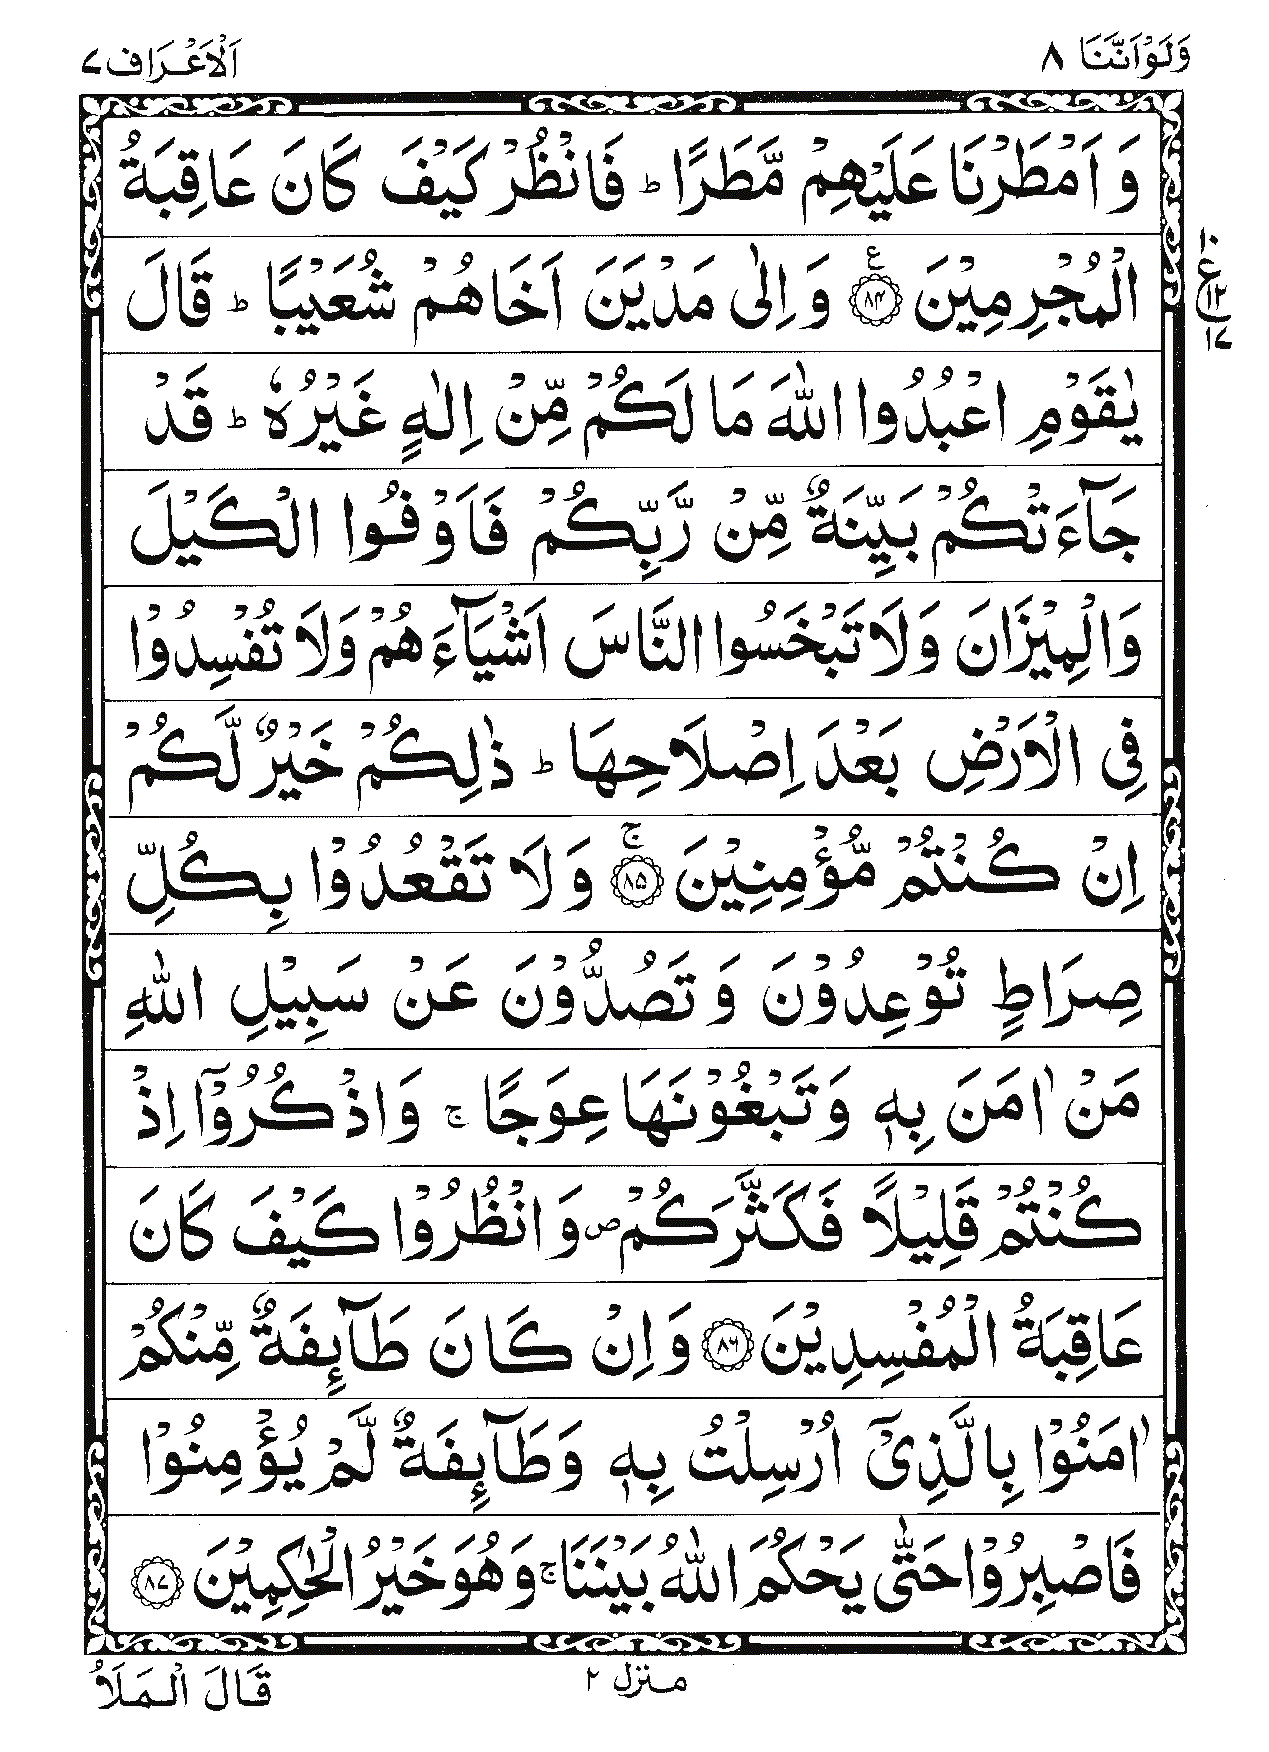 وَلَوْ اَنَّنَا ٨
اَلْاَعْرَاف ٧
وَ اَمْطَرْنَا عَلَيْهِمْ مَّطَرًا ؕ فَانْظُرْ كَيْفَ كَانَ عَاقِبَةُ
الْمُجْرِمِيْنَ ﴿٨٤﴾ ع وَ اِلٰى مَدْيَنَ اَخَاهُمْ شُعَيْبًا ؕ قَالَ
١٠
ع ١٢
١٧
يٰقَوْمِ اعْبُدُوا اللّٰهَ مَا لَكُمْ مِّنْ اِلٰهٍ غَيْرُهٗ ؕ قَدْ
جَآءَتْكُمْ بَيِّنَةٌ مِّنْ رَّبِّكُمْ فَاَوْفُوا الْكَيْلَ
وَالْمِيْزَانَ وَلَا تَبْخَسُوا النَّاسَ اَشْيَآءَهُمْ وَلَا تُفْسِدُوْا
فِى الْاَرْضِ بَعْدَ اِصْلَاحِهَا ؕ ذٰلِكُمْ خَيْرٌ لَّكُمْ
اِنْ كُنْتُمْ مُّؤْمِنِيْنَ ۚ﴿٨٥﴾ وَ لَا تَقْعُدُوْا بِكُلِّ
صِرَاطٍ تُوْعِدُوْنَ وَ تَصُدُّوْنَ عَنْ سَبِيْلِ اللّٰهِ
مَنْ اٰمَنَ بِهٖ وَ تَبْغُوْنَهَا عِوَجًا ۚ وَ اذْكُرُوْۤا اِذْ
كُنْتُمْ قَلِيْلًا فَكَثَّرَكُمْ ص وَ انْظُرُوْا كَيْفَ كَانَ
عَاقِبَةُ الْمُفْسِدِيْنَ ﴿٨٦﴾ وَ اِنْ كَانَ طَآئِفَةٌ مِّنْكُمْ
اٰمَنُوْا بِالَّذِىْۤ اُرْسِلْتُ بِهٖ وَطَآئِفَةٌ لَّمْ يُؤْمِنُوْا
فَاصْبِرُوْا حَتّٰى يَحْكُمَ اللّٰهُ بَيْنَنَا ۚ وَهُوَ خَيْرُ الْحٰكِمِيْنَ ﴿٨٧﴾
منزل ٢
قَالَ الْمَلَاُ